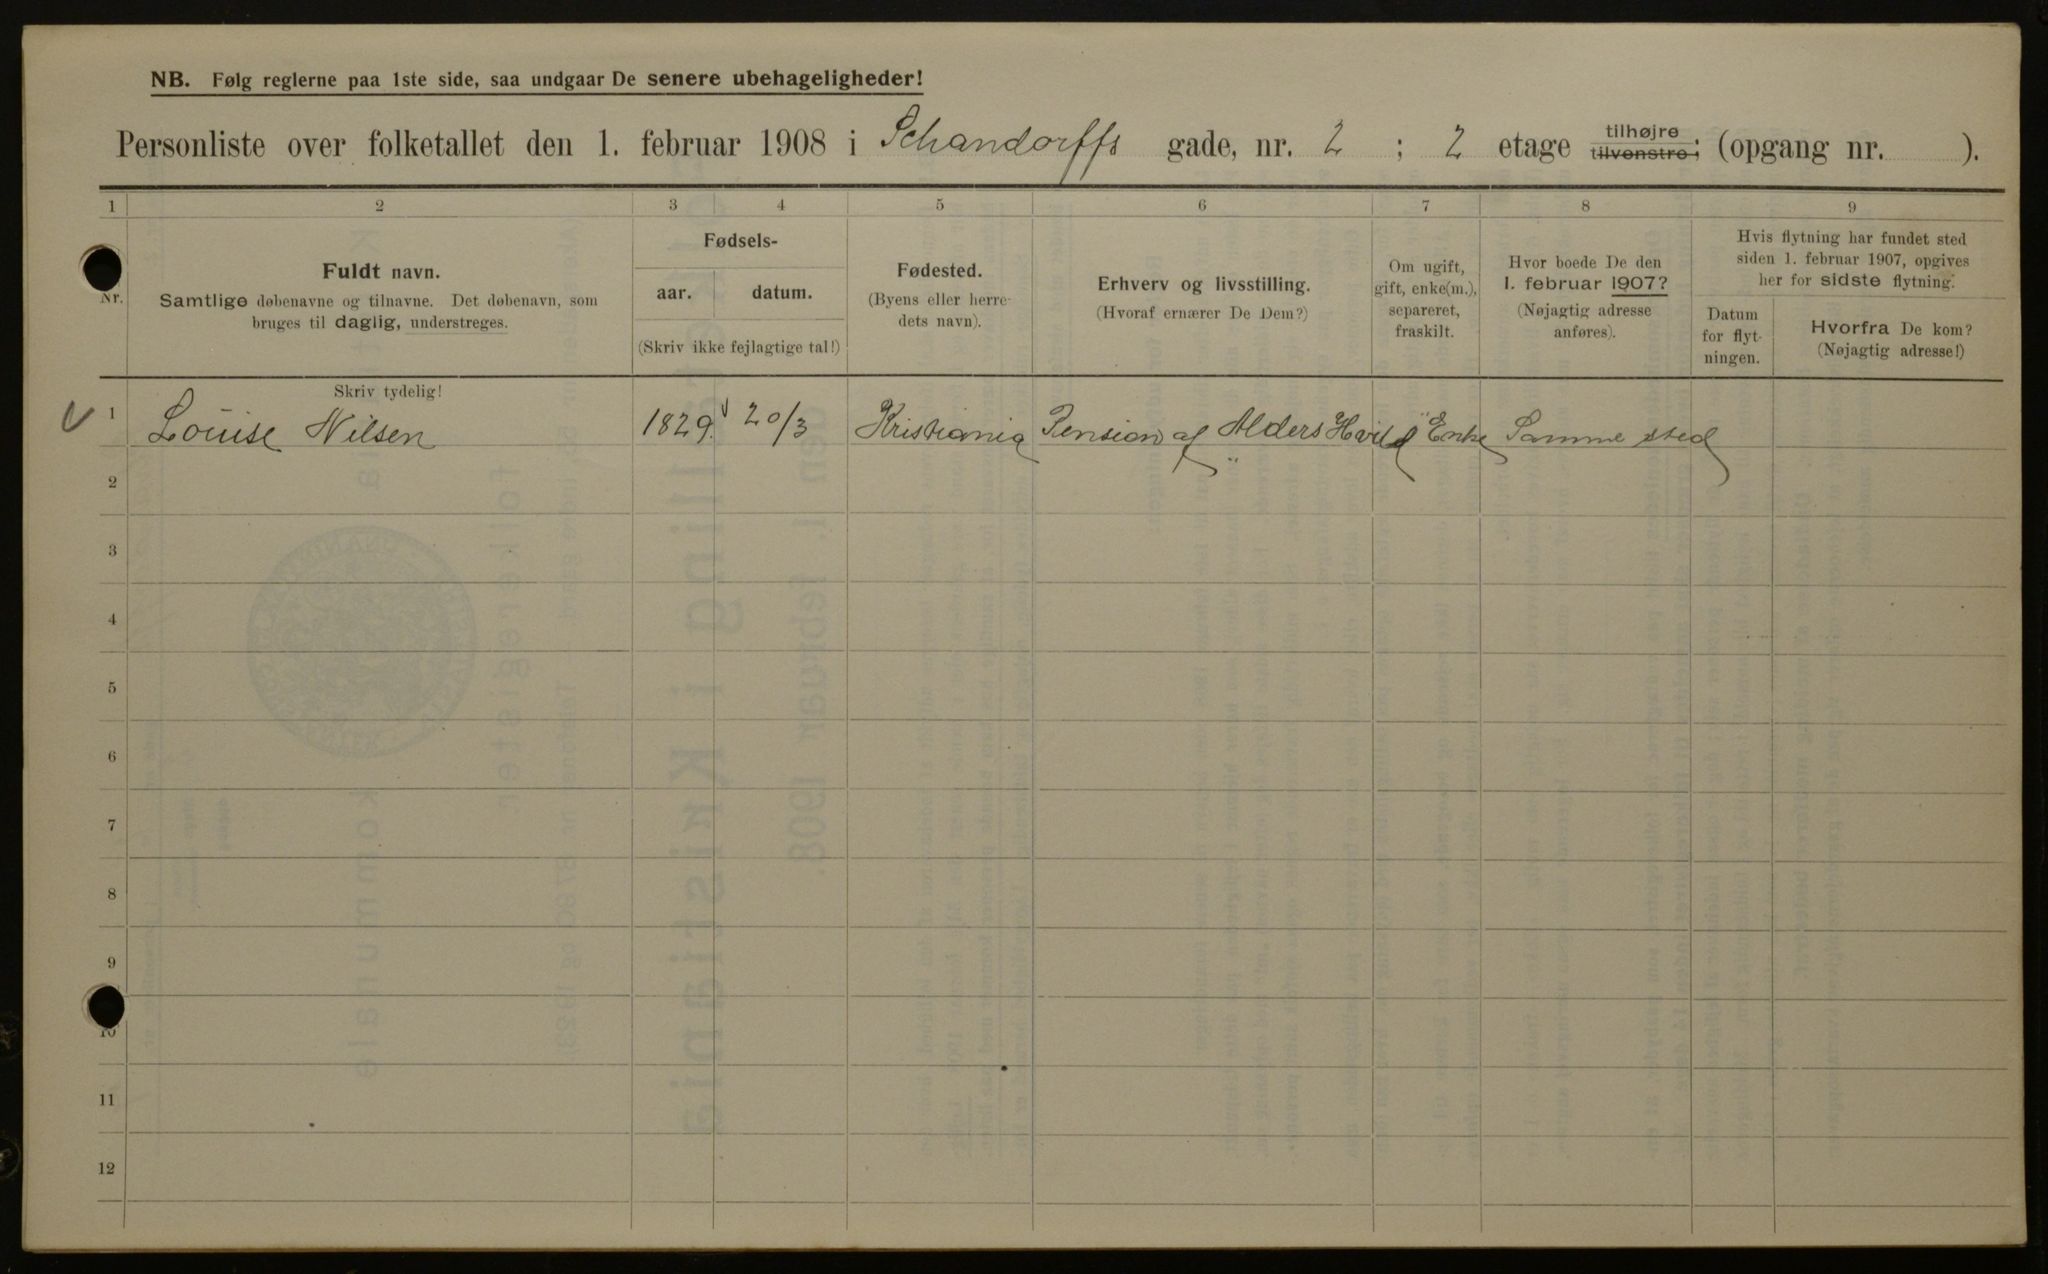 NB. Følg reglerne paa 1ste side, saa undgaar De senere ubehageligheder!
Personliste over folketallet den 1. februar 1908 i Schandorffs gade, nr. 2 ; 2 etage tilhøjre tilvenstre; (opgang nr. ).
1 2 3 4 5 6 7 8 9
Nr.
Fuldt navn.
Samtlige døbenavne og tilnavne. Det døbenavn, som
bruges til daglig, understreges.
Fødsels-
aar. datum.
(Skriv ikke fejlagtige tal!)
Fødested.
(Byens eller herre-
dets navn).
Erhverv og livsstilling.
(Hvoraf ernærer De Dem?)
Om ugift,
gift, enke(m.),
separeret,
fraskilt.
Hvor boede De den
1. februar 1907?
(Nøjagtig adresse
anføres).
Hvis flytning har fundet sted
siden 1. februar 1907, opgives
her for sidste flytning.
Datum
for flyt-
ningen.
Hvorfra De kom?
(Nøjagtig adresse!)
Skriv tydelig!
1 Louise Nilsen 1829. 20/3 Kristiania Pension af „Alders Hvild“ Enke Samme sted
2
3
4
5
6
7
8
9
10
11
12